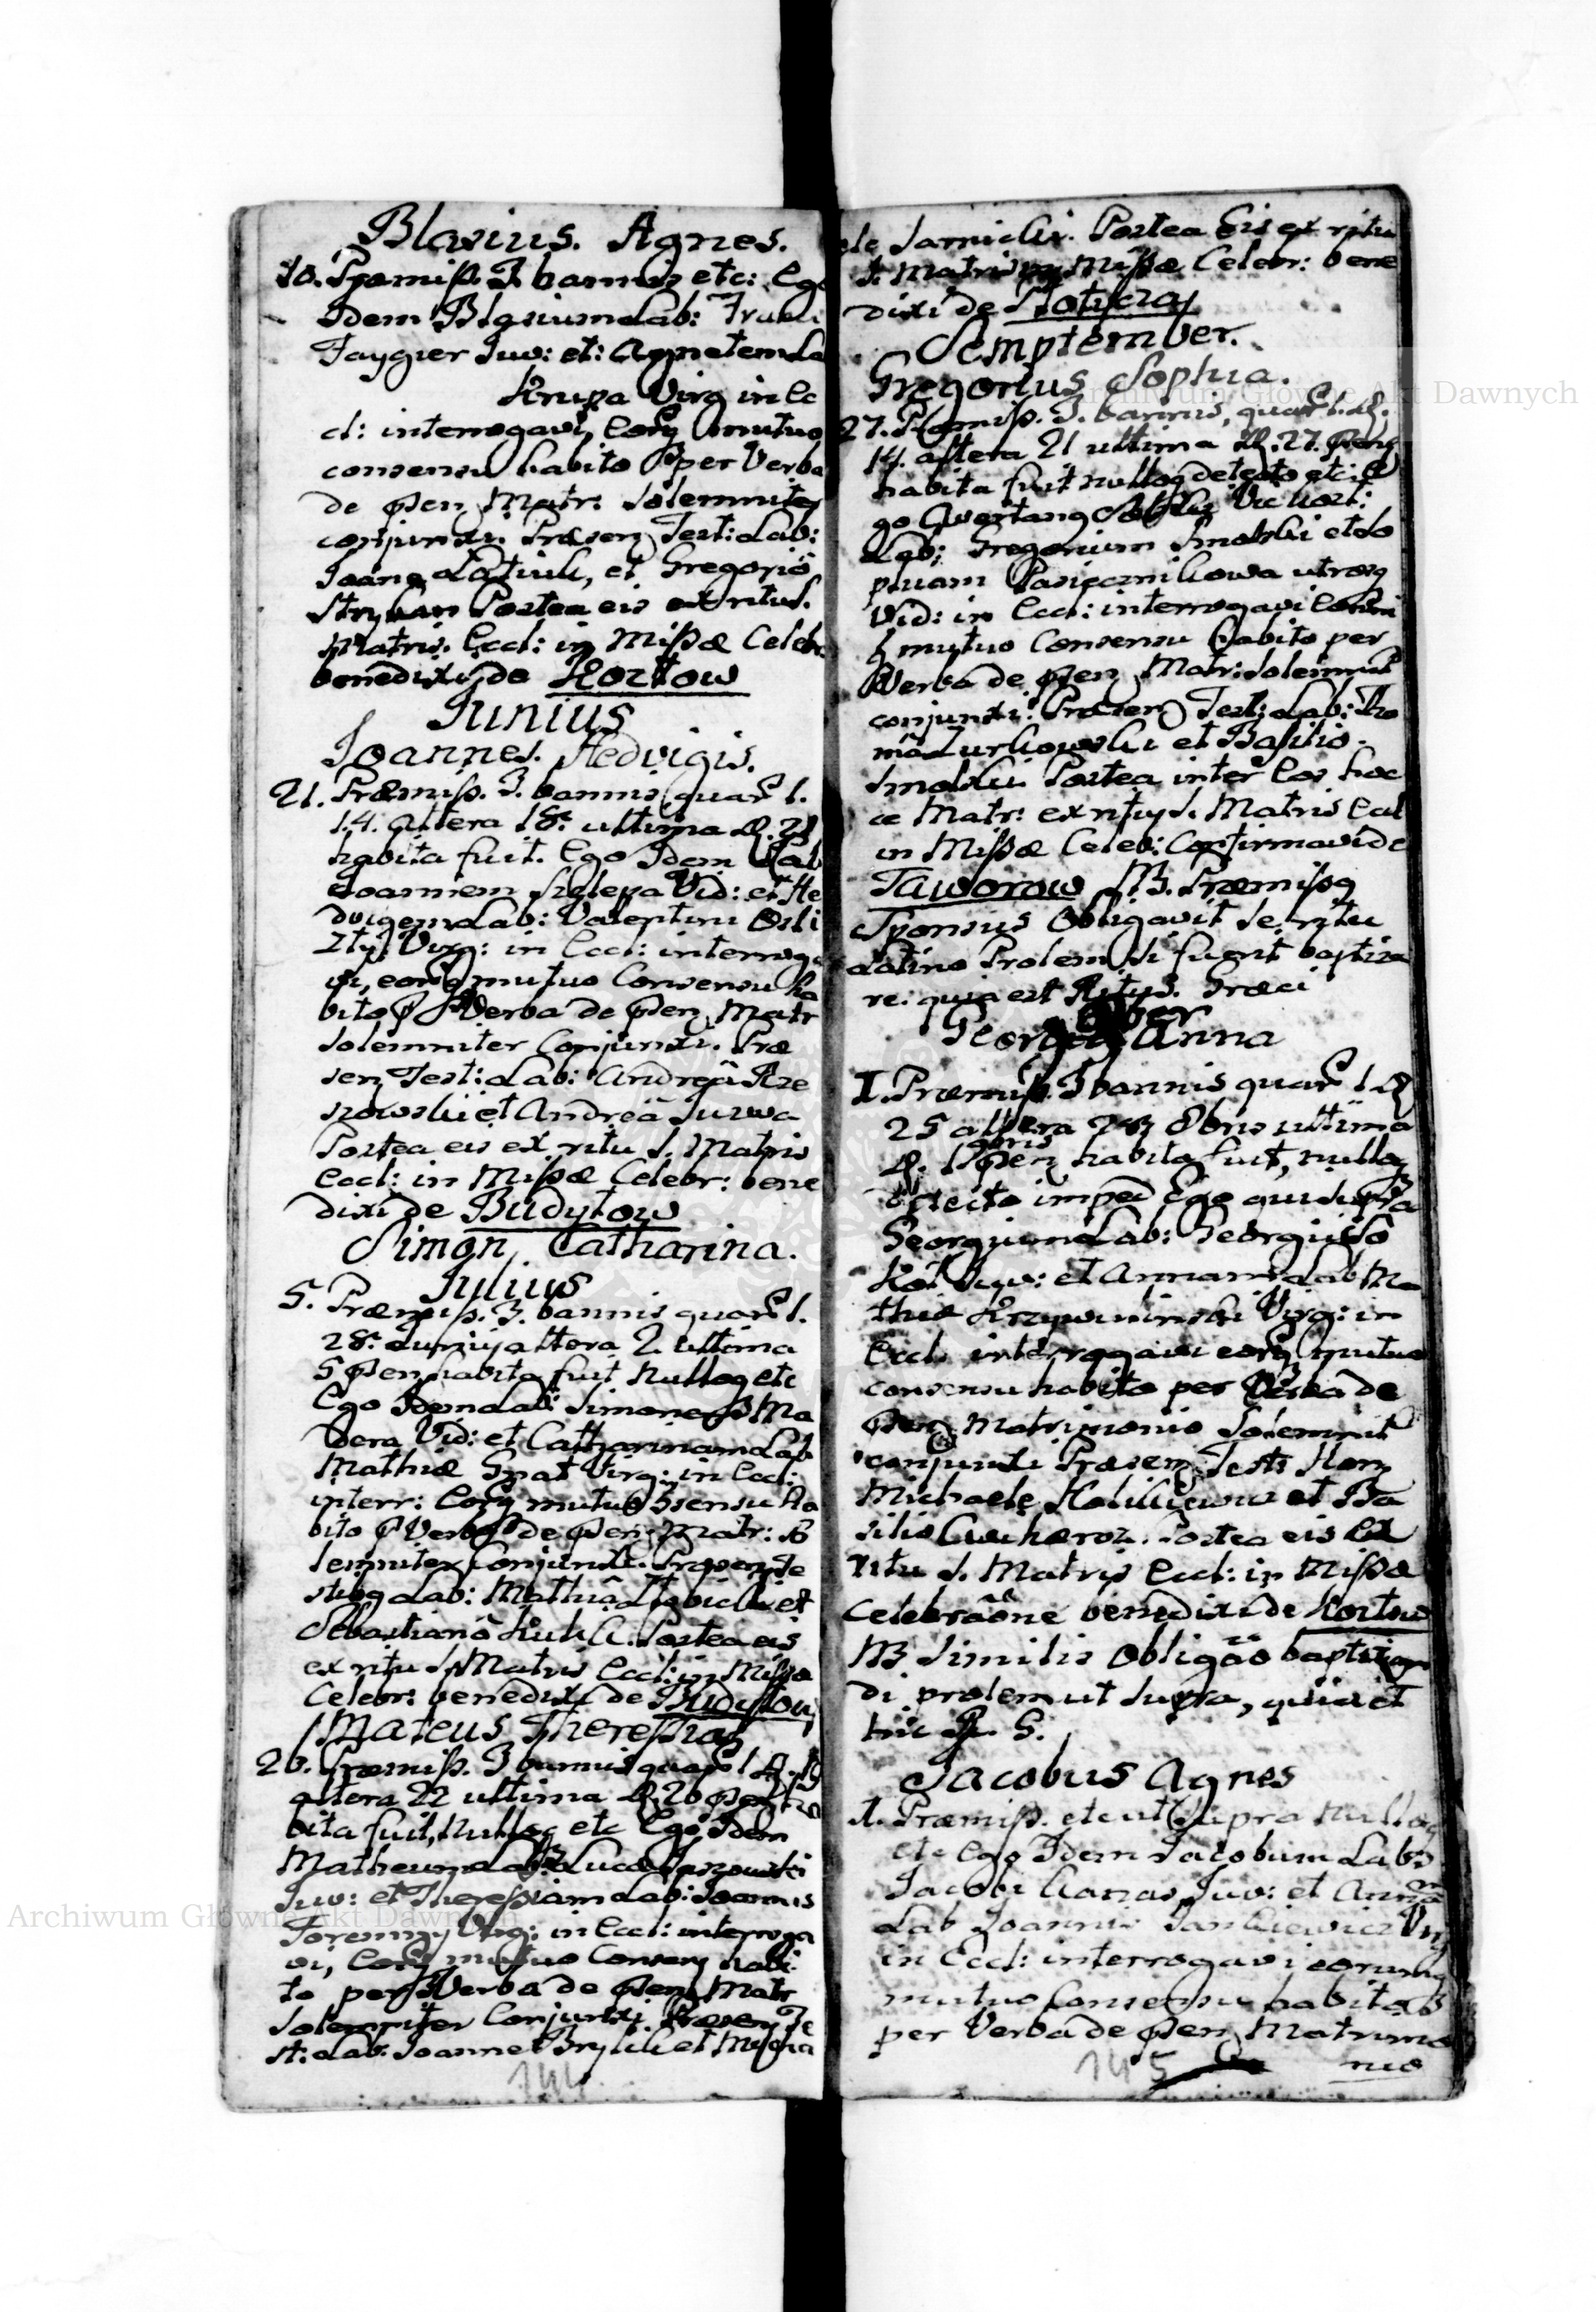 Blasius. Agnes.
10. Praemiss. 3. bannis etc: Ego
Idem Blasium Lab:
Faygier Juv: et: Agnetem La
Krupa Virg in Ec
cl: interrogavi, eorq mutuo
consensu habito per Verba
de psen Matr: Solemniter
conjunxi. Praesen Test: Lab:
Joane et Gregorio
Stryhan Postea eis ex ritu S.
Matris. Eccl: in Missae Celebr
benedixi, de Kostow
Junius
Joannes. Hedvigis.
21. Praemiss. 3. bannis quar 1.
14. altera 18. ultima D. 21
habita fuit. Ego Idem Lab
Joannem Vid: et He
dvigem Lab: Valentini
Virg: in Eccl: interroga
vi, eorq mutuo Consensu ha
bito Verba de psen Matr
Solemniter Conjunxi. Prae
sen Test: Lab: Andrea Rze
szowski et Andrea Surwa
Postea eis ex ritu S. Matris
Eccl: in Missae Celebr: bene
dixi de Budytow
Simon, Catharina.
Julius
5. Praemiss. 3. bannis quar 1.
28. Junij altera 2. ultima
5 psen habita fuit Nulloq etc
Ego Idem Lab Simonem Ma
dera Vid: et Catharinam Lab
Mathiae Gnat Virg: in Eccl:
interr: Eorq mutuo Csensu ha
bito p Verba de psen Matr: So
lemniter Conjunxi. Praesen Te
stibq Lab: Mathia et
Sebastiano Kulik. Postea eis
ex ritu S. Matris Eccl: in Missae
Celebr: benedixi de Budytow
Mateus Theressia
26. Praemiss. 3 bannis quar 1 D. 19
altera 22 ultima D. 26 psen ha
bita fuit, Nulloq etc Ego Idem
Matheum Lab: Lucae
Juv: et Theressiam Lab: Joannis
Foremny Virg: in Eccl: interroga
vi, Eorq mutuo Consen habi
to per Verba de psen Matr
Solemniter Conjunxi. Praesen Te
st: Lab: Joanne Brylik et Micha
144
ele Sarnicki. Postea Eis ex ritu
S. Matris in Missae Celebr: bene
dixi de
Semptember.
Gregorius Sophia.
27. Praemiss. 3. bannis, quar 1. D.
14. altera 21 ultima D. 27. psen
habita fuit nulloq detecto etc: E
go
Lab: Gregorium Smolski et So
phiam Pasiecznikowa utrosq
Vid: in Eccl: interrogavi Eorum
q mutuo Consensu habito per
Verba de psen Matr: Solemnit
conjunxi. Praesen Test: Lab: Tho
ma Zurkowski et Basilio
Smolski Postea inter Eos hoc
ce Matr: ex ritu S. Matris Eccl
in Missae Celeb: Confirmavi de
Jaworow NB. Praemissq
Sponsus Obligavit se ritu
Latino Prolem si fuerit baptiza
re. quia est Ritus Graeci
9ber
Georgius Anna
1. Praemiss. 3 bannis quar 1 D
25 altera 28 8bris ultima
D. 1 9bris psen habita fuit, nulloq
detecto imped Ego qui supra
Georgium Lab: Georgii So
kol Juv: et Annam Lab Ma
thiae Virg: in
Eccl. interrogavi eorq mutuo
consensu habito per Verba de
psen Matrimonio Solemnit
conjunxi Praesen Test Hon
Michaele et Ba
silio Postea eis Ex
ritu S. Matris Eccl: in Missae
Celebraone benedixi de Kostow
NB Similis Obligao baptizan
di prolem ut Supra, quia et
hic R. G.
Jacobus Agnes
1. Praemiss. etc ut Supra Nulloq
etc Ego Idem Jacobum Lab:
Jacobi Kanas Juv: et Annam
Lab Joannis Jankiewicz Virg
in Eccl: interrogavi eorumq
mutuo Consensu habito
per Verba de psen Matrimo
nio
145
Archiwum Główne Akt Dawnych
Archiwum Główne Akt Dawnych